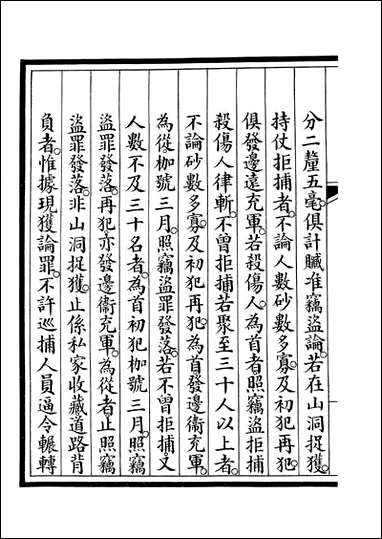 分二釐五毫俱計贓准竊盜論若在山洞捉獲
持仗拒捕者不論人數砂數多寡及初犯再犯
俱發邊遠充軍若殺傷人為首者照竊盜拒捕
殺傷人律斬不曾拒捕若聚至三十人以上者
不論砂數多寡及初犯再犯為首發邊衞充軍
為從枷號三月照竊盜罪發落若不曾拒捕又
人數不及三十名者為首初犯枷號三月照竊
盜罪發落再犯亦發邊衞充軍為從者止照竊
盜罪發落非山洞捉獲止係私家收藏道路背
負者惟據現獲論罪不許巡捕人員逼令輾轉